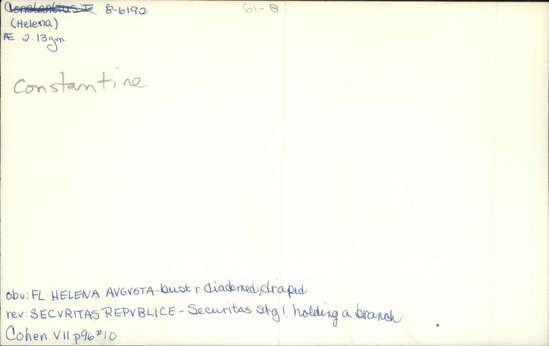 Constantius I 8-6192 61-B
(Helena)
Æ 2.13gm
Constantine
obv: FL HELENA AVGVSTA-bust r diademed, draped
rev: SECVRITAS REPVBLICE - Securitas stg l. holding a branch
Cohen VII p96 #10